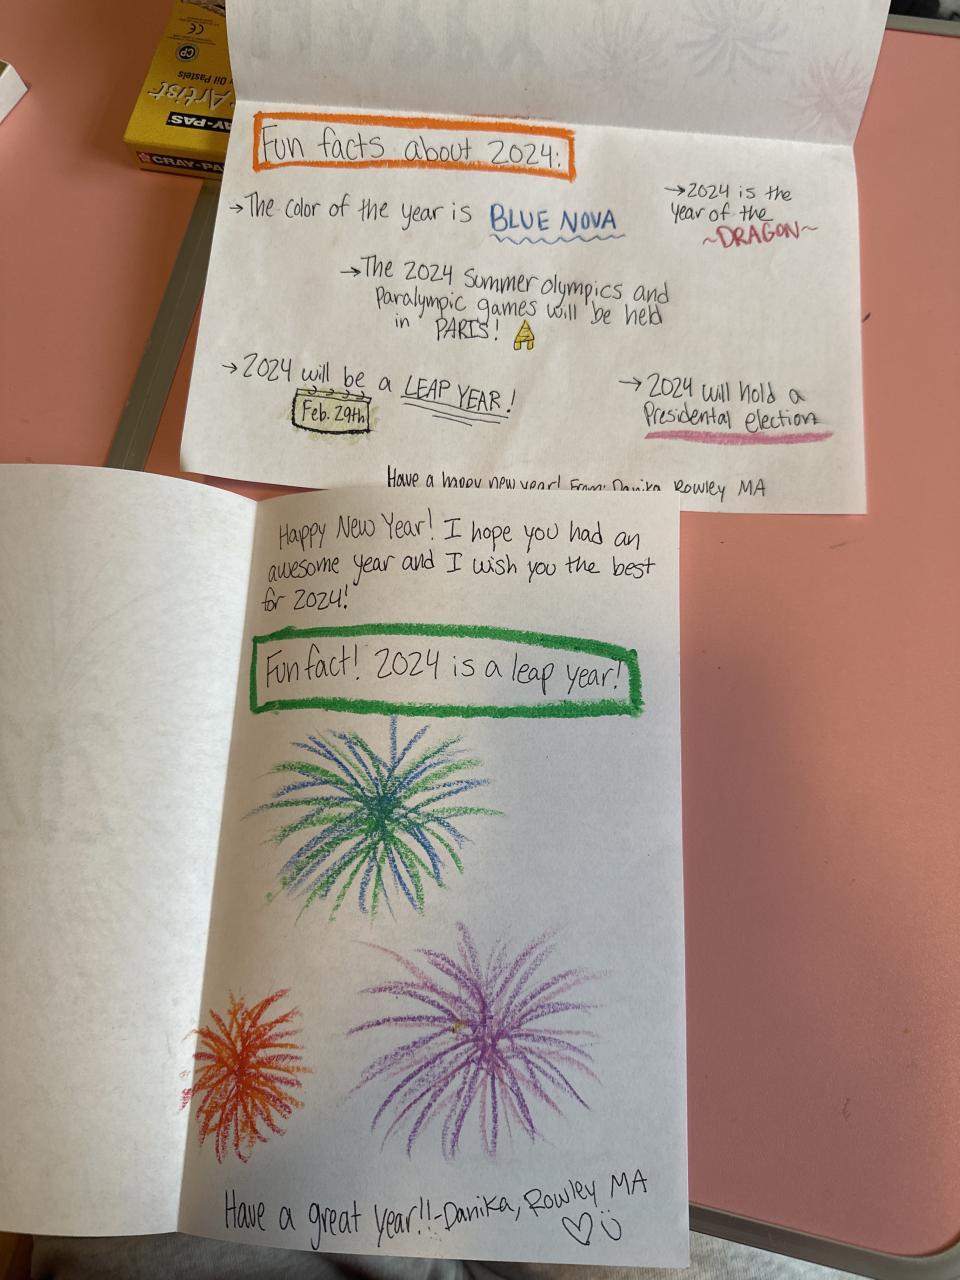 Oil Pastels
Artist
CRAY-PAS
CRAY-PA
CP
CE
Fun facts about 2024:
→The color of the year is BLUE NOVA
→2024 is the
year of the
~DRAGON~
→The 2024 Summer olympics and
Paralympic games will be held
in PARIS!
→2024 will be a LEAP YEAR!
Feb. 29th
→2024 will hold a
Presidential election
Have a happy new year! From: Danika Rowley MA
Happy New Year! I hope you had an
awesome year and I wish you the best
for 2024!
Fun fact! 2024 is a leap year!
Have a great year!!-Danika, Rowley MA
♡☺